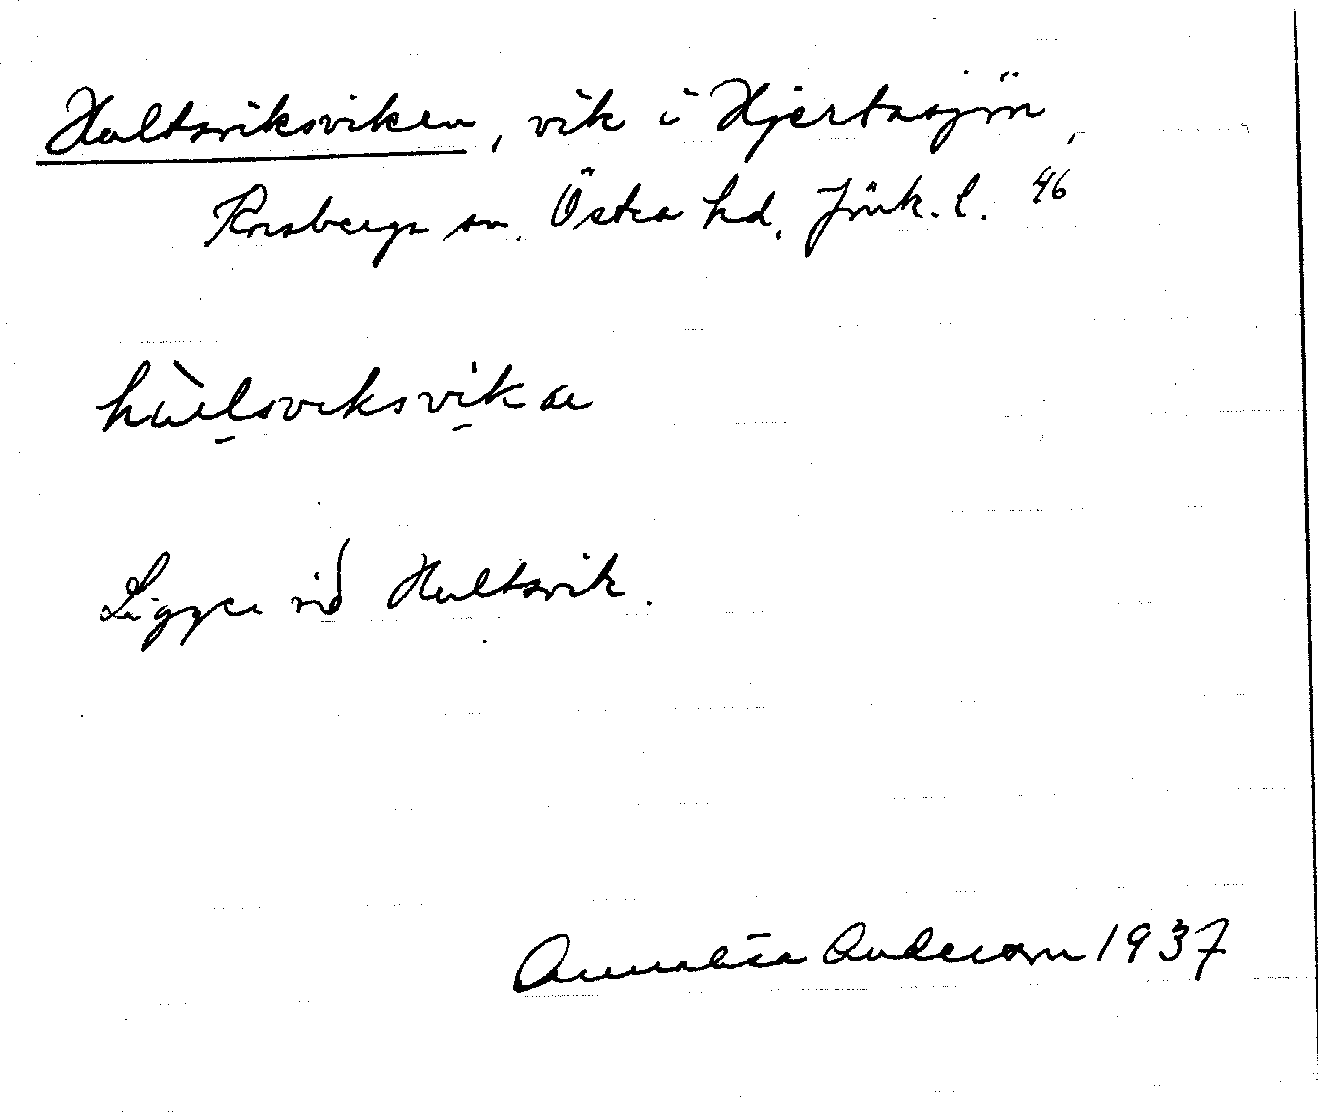 Hultsviksviken, vik i Hjertasjön,
Korsberga sn. Östra hd. Jönk. l. 46
hùlsveksvikæ
Ligger vid Hultsvik.
Annalisa Anderson 1937